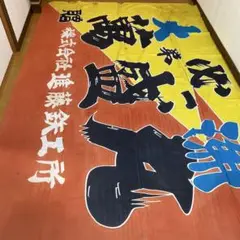 大漁
萬盛丸
贈
株式会社 進藤鉄工所